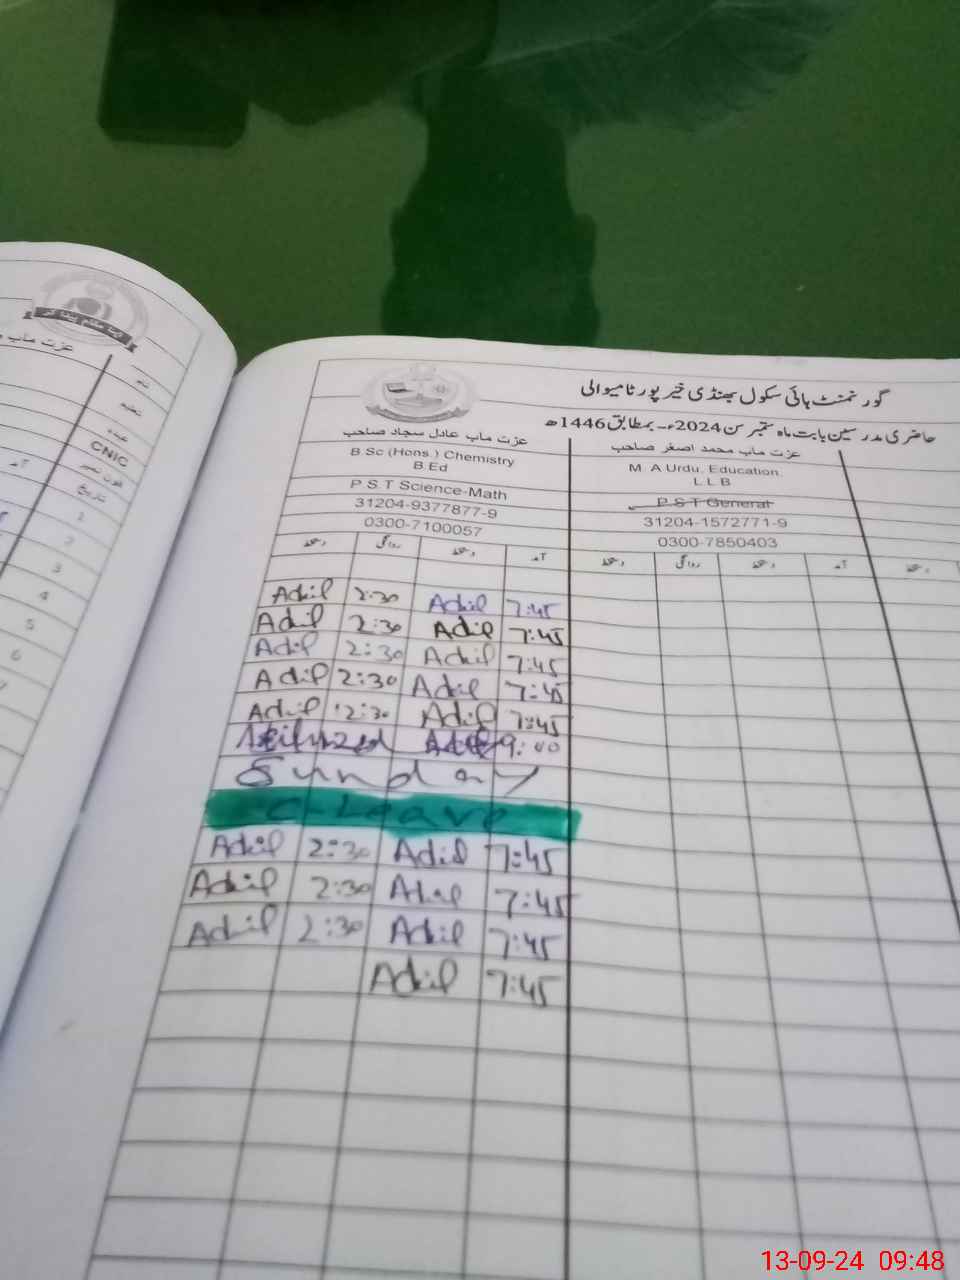 دیتا مقام پیدا کر
عزت ماب
نام
تعلیم
عہدہ
CNIC
فون نمبر
تاریخ
آمد
1
2
3
4
5
6
7
گورنمنٹ ہائی سکول بھنڈی خیر پور ٹامیوالی
حاضری مدرسین بابت ماہ ستمبر سن 2024ء۔ بمطابق 1446ھ
عزت ماب عادل سجاد صاحب
عزت ماب محمد اصغر صاحب
B.Sc (Hons.) Chemistry
B.Ed
M. A Urdu, Education,
L.L.B
P.S.T Science-Math
P.S.T General
31204-9377877-9
31204-1572771-9
0300-7100057
0300-7850403
دستخط روانگی دستخط آمد دستخط روانگی دستخط آمد دستخط
Adil 2:30 Adil 7:45
Adil 2:30 Adil 7:45
Adil 2:30 Adil 7:45
Adil 2:30 Adil 7:45
Adil 12:30 Adil 7:45
9:00
Sunday
C-Leave
Adil 2:30 Adil 7:45
Adil 2:30 Adil 7:45
Adil 2:30 Adil 7:45
Adil 7:45
13-09-24 09:48